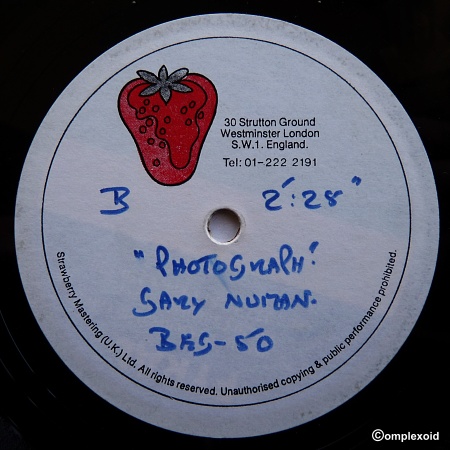 30 Strutton Ground
Westminster London
S.W.1. England.
Tel: 01-222 2191
B 2':28"
"PHOTOGRAPH".
GARY NUMAN.
BEG-50
Strawberry Mastering (U.K.) Ltd. All rights reserved. Unauthorised copying & public performance prohibited.
©omplexoid